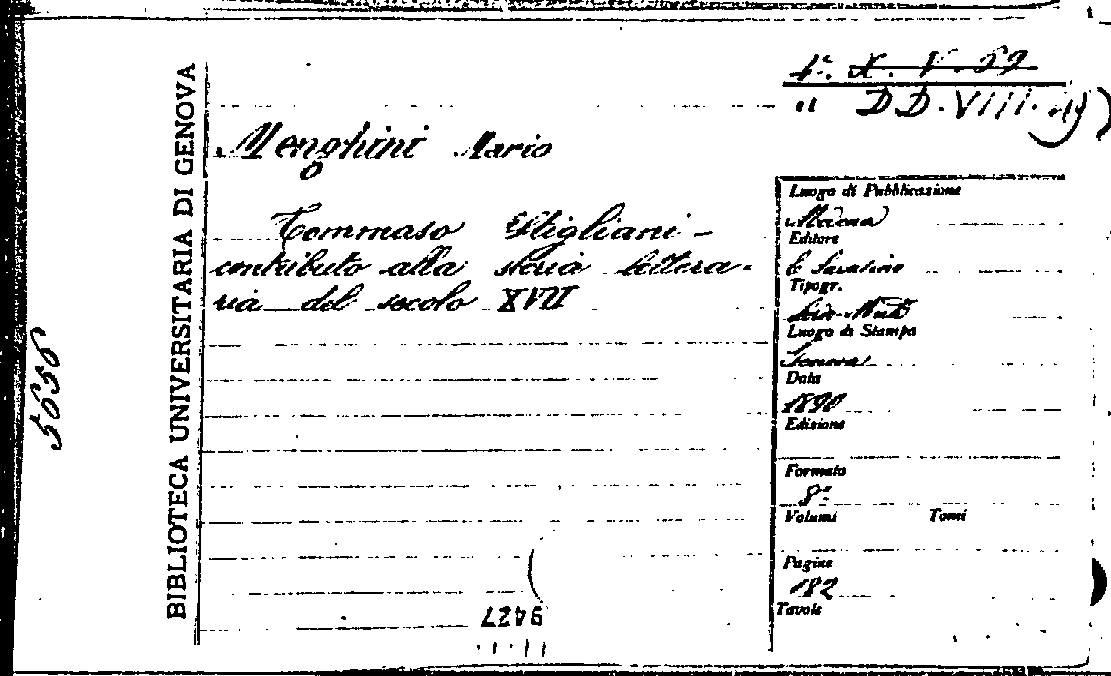 4ª. X. V. 59
" DD. VIII. 19)
Menghini Mario
Tommaso Stigliani -
contributo alla storia lettera-
ria del secolo XVII
BIBLIOTECA UNIVERSITARIA DI GENOVA
5656
Luogo di Pubblicazione
Modena
Editore
E Sarasino
Tipogr.
Luogo di Stampa
Genova
Data
1890
Edizione
Formato
8º
Volumi Tomi
Pagine
182
Tavole
9427